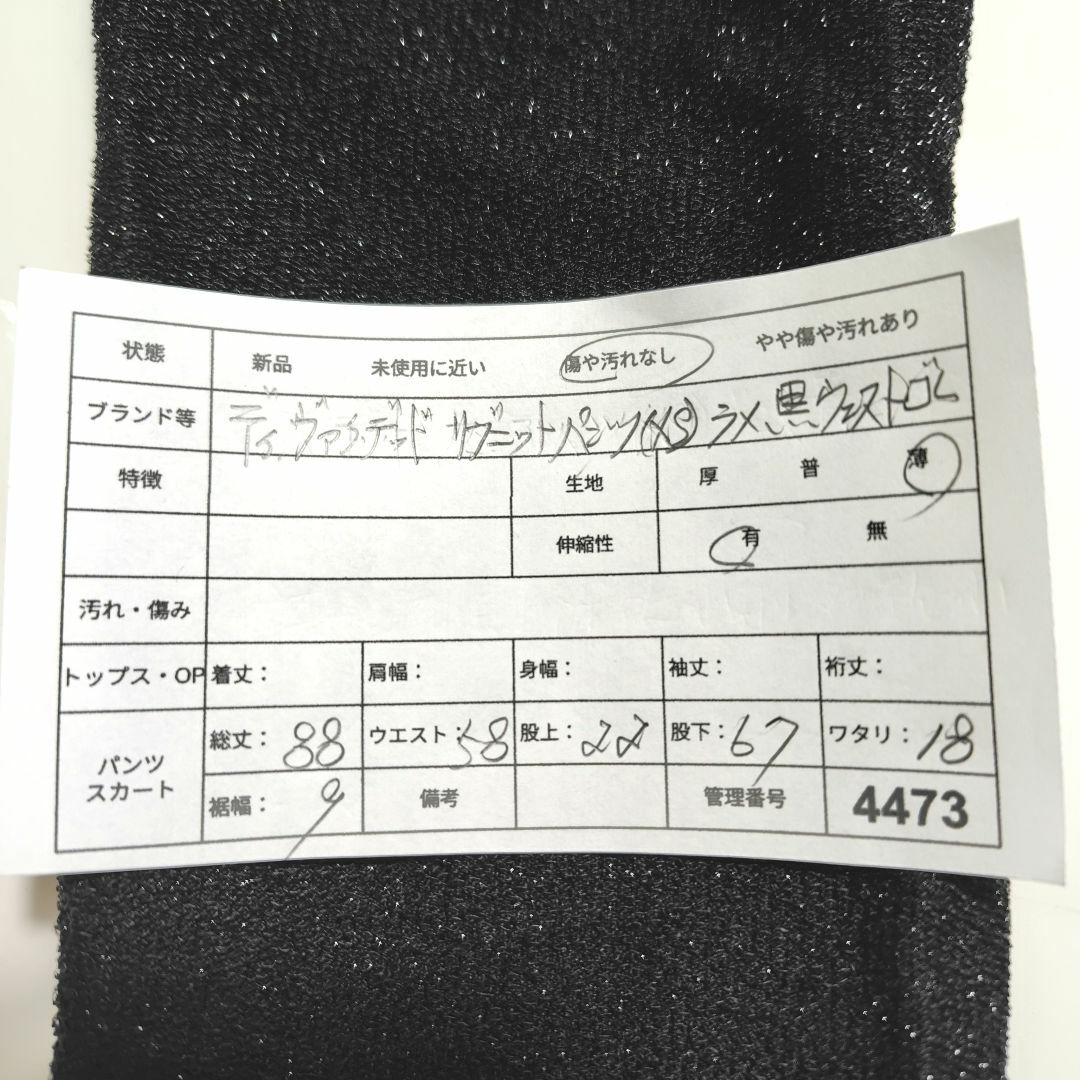 状態 新品 未使用に近い 傷や汚れなし やや傷や汚れあり
ブランド等 パンツ(XS) ラメ 黒 ウエストゴム
特徴 生地 厚 普 薄
伸縮性 有 無
汚れ・傷み
トップス・OP 着丈: 肩幅: 身幅: 袖丈: 裄丈:
パンツ スカート 総丈: 88 ウエスト: 58 股上: 22 股下: 67 ワタリ: 18
裾幅: 9 備考 管理番号 4473